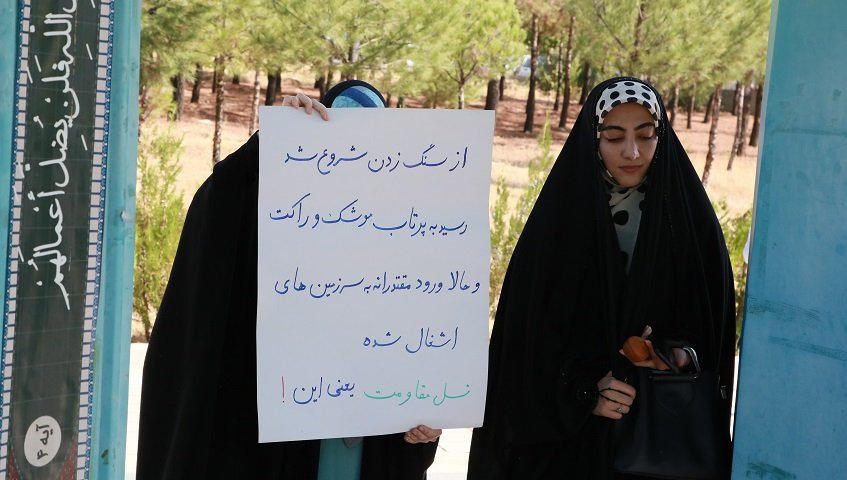 از سنگ زدن شروع شد
رسید به پرتاب موشک و راکت
و حالا ورود مقتدرانه به سرزمین های
اشغال شده
نسل مقاومت یعنی این !
اللهِ فَلَن يُضِلَّ أَعْمالَهُمْ
آیه ۴